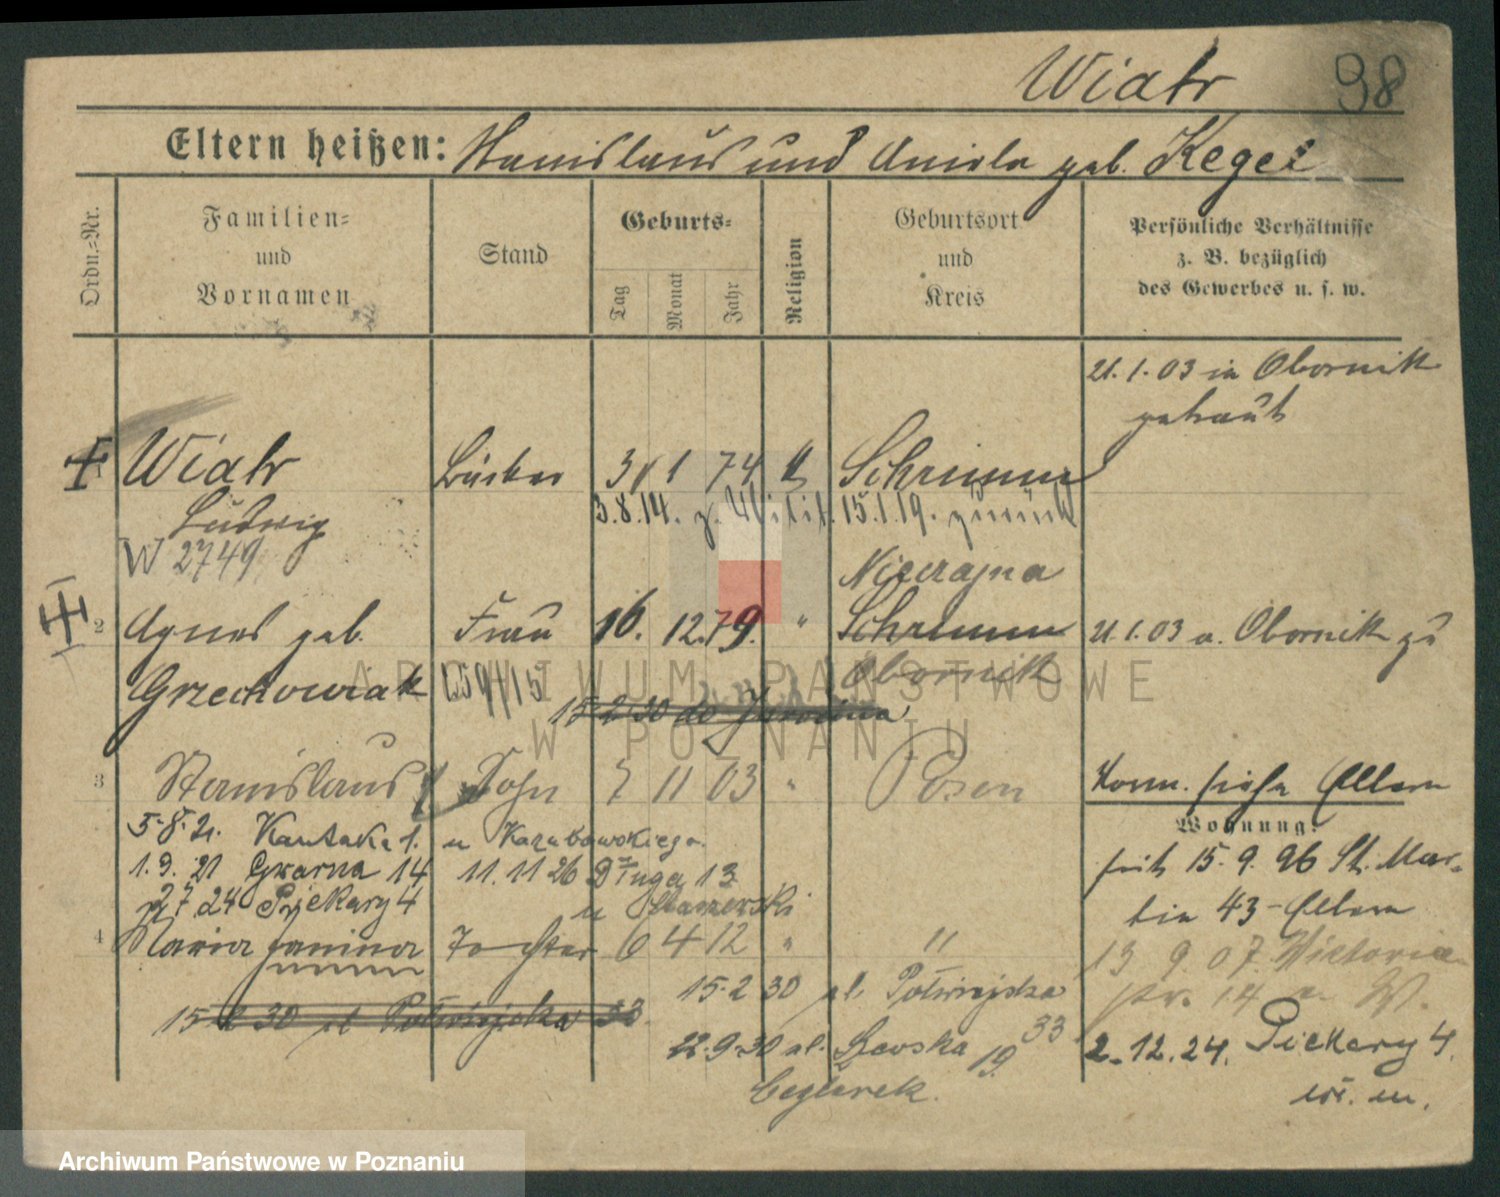 Wiatr 98
Eltern heißen: Stanislaus und Aniela geb. Kegel
Ordn.=Nr.
Familien=
und
Vornamen
Stand
Geburts=
Tag
Monat
Jahr
Religion
Geburtsort
und
Kreis
Persönliche Verhältnisse
z. B. bezüglich
des Gewerbes u. s. w.
21.1.03 in Obornik
getraut
Wiatr Bäcker 31 1 74 k Schrimm
Ludwig 3.8.14. z. Milit. 15.1.19. zurück
W 2749
Niezajna
2 Agnes geb. Frau 16. 12. 79. " Schrimm 21.1.03 v. Obornik zu
Grzechowiak 159/15 Obornik
15 2 30 do Jarocina
3 Stanislaus Sohn 7 11 03 " Posen Komm. siehe Eltern
Wohnung:
5.8.21. Kantaka 1. u Karubowskiego.
1.9.21 Gwarna 14 11.11 26 Długa 13 seit 15.9.06 St. Mar-
27 24 Piekary 4 u tin 43 - Eltern
4 Maria Janina Tochter 6 4 12 " " 13 9. 07. Viktoria
15 2 30 pl. Półwiejska str. 14 W.
15 2 30 pl Półwiejska 33 33
22.9.30 ul. Szewska 19. 2.12.24. Piekary 4.
Ceglarek. w. m.
ARCHIWUM PAŃSTWOWE
W POZNANIU
Archiwum Państwowe w Poznaniu